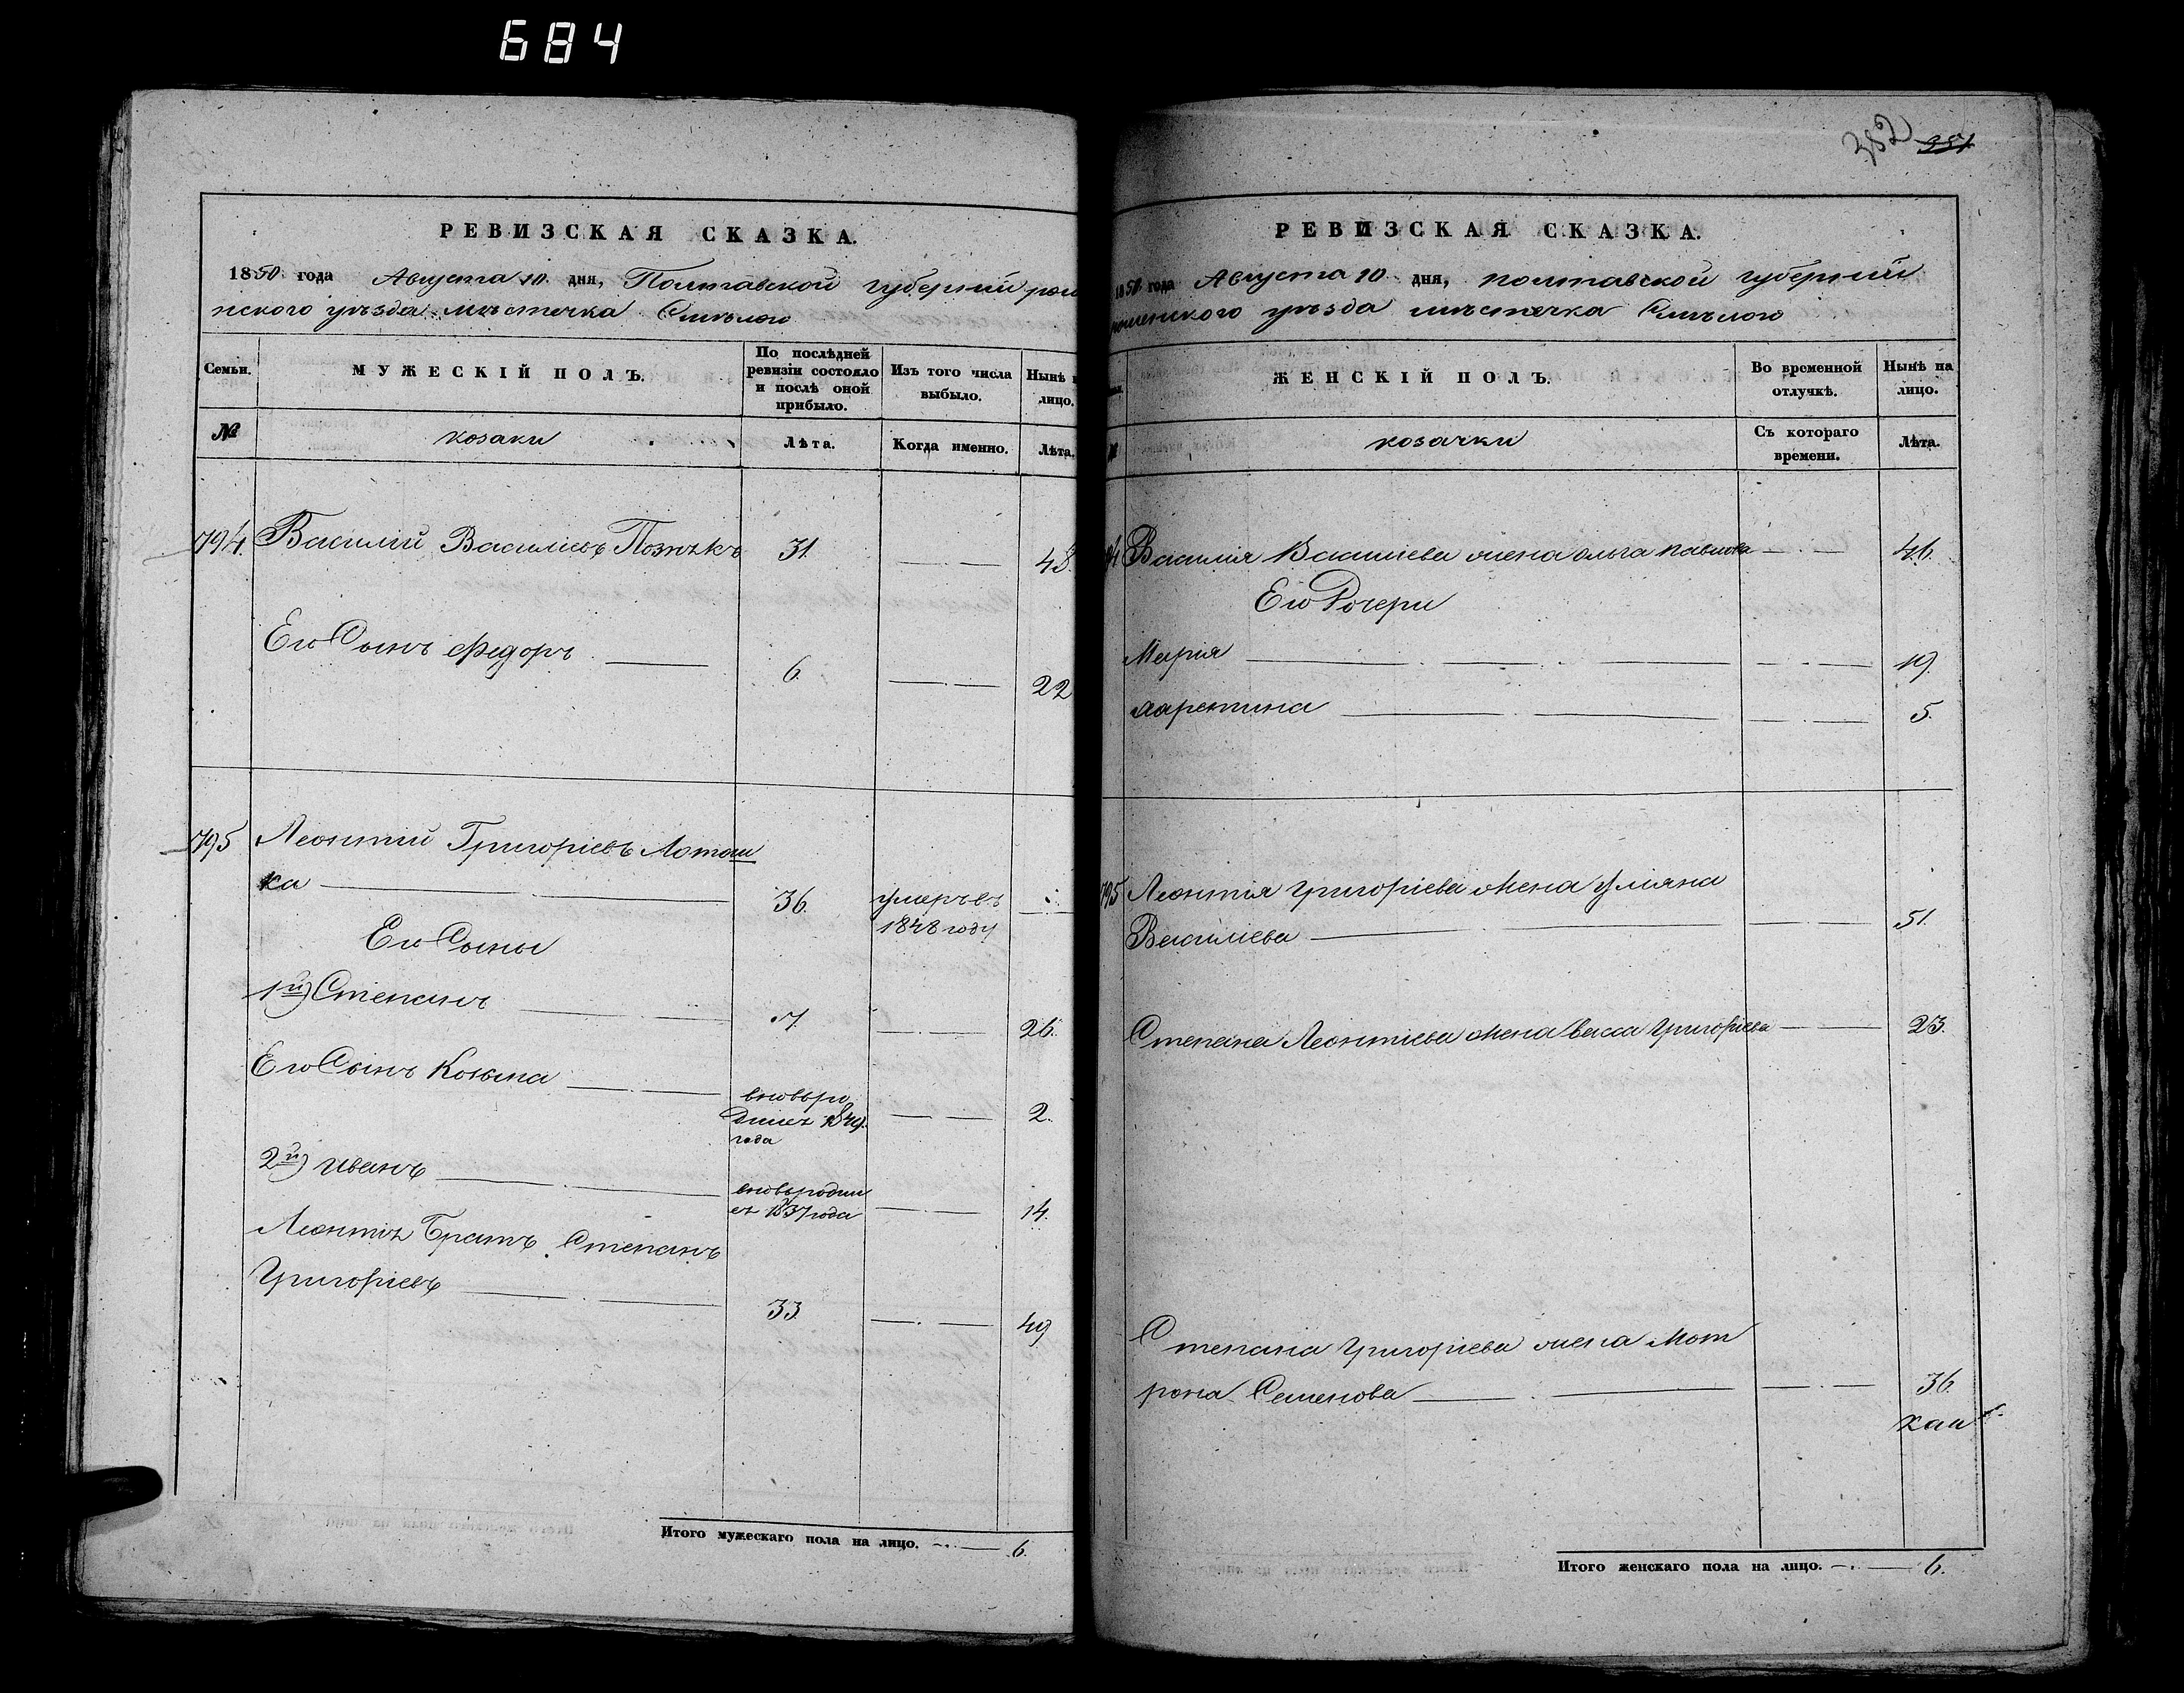 684
382 351
РЕВИЗСКАЯ СКАЗКА.
1850 года Августа 10 дня, Полтавской губерніи роме
нского уѣзда мѣстечка Смѣлого
Семьи.
МУЖЕСКІЙ ПОЛЪ.
По послѣдней ревизіи состояло и послѣ оной прибыло.
Изъ того числа выбыло.
Нынѣ на лицо.
№
козаки
Лѣта.
Когда именно.
Лѣта.
794. Василий Василиевъ 31. 48.
Его Сынъ Федоръ 6. 22
795 Леонтий Григоріевъ Лотош
ка 36. умеръ въ
1848 году
Его Сыны
1й) Степанъ 7. 26.
Его Сынъ Козьма вновьро
дилсѧ 1849. 2.
года
2й) Иванъ вновьродил
сѧ 1837 года 14.
Леонтіѧ Братъ Степанъ
Григоріевъ 33. 49
Итого мужескаго пола на лицо. 6.
РЕВИЗСКАЯ СКАЗКА.
1850 года Августа 10 дня, полтавской губерніи
роменского уѣзда мѣстечка Смѣлого
ЖЕНСКІЙ ПОЛЪ.
Во временной отлучкѣ.
Нынѣ на лицо.
№
козачки
Съ котораго времени.
Лѣта.
794 Василія Василиева жена ольга павлова 46.
Его Дочери
Мария 19.
5.
795 Леонтія григоріева жена Улияна
Василиева 51.
Степана Леонтиева жена васса григоріева 23.
Степана григориева жена Мот
рона Семенова 36.
Итого женскаго пола на лицо. 6.